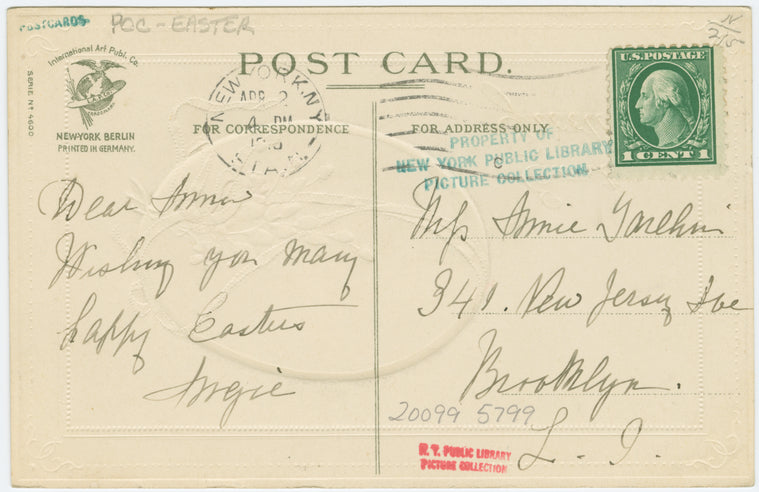 POSTCARDS
PCC - EASTER
International Art Publ. Co.
NEW YORK BERLIN
PRINTED IN GERMANY.
SERIE Nº 4600
POST CARD.
NEW YORK, N.Y.
APR 2
4 PM
STA.
U.S. POSTAGE
1 CENT 1
FOR CORRESPONDENCE
FOR ADDRESS ONLY
C
PROPERTY OF
NEW YORK PUBLIC LIBRARY
PICTURE COLLECTION
Dear Anna
Wishing you many
happy Easters
Angie
Miss Annie
341. New Jersey Ave
Brooklyn.
L. I.
20099 5799
N. Y. PUBLIC LIBRARY
PICTURE COLLECTION